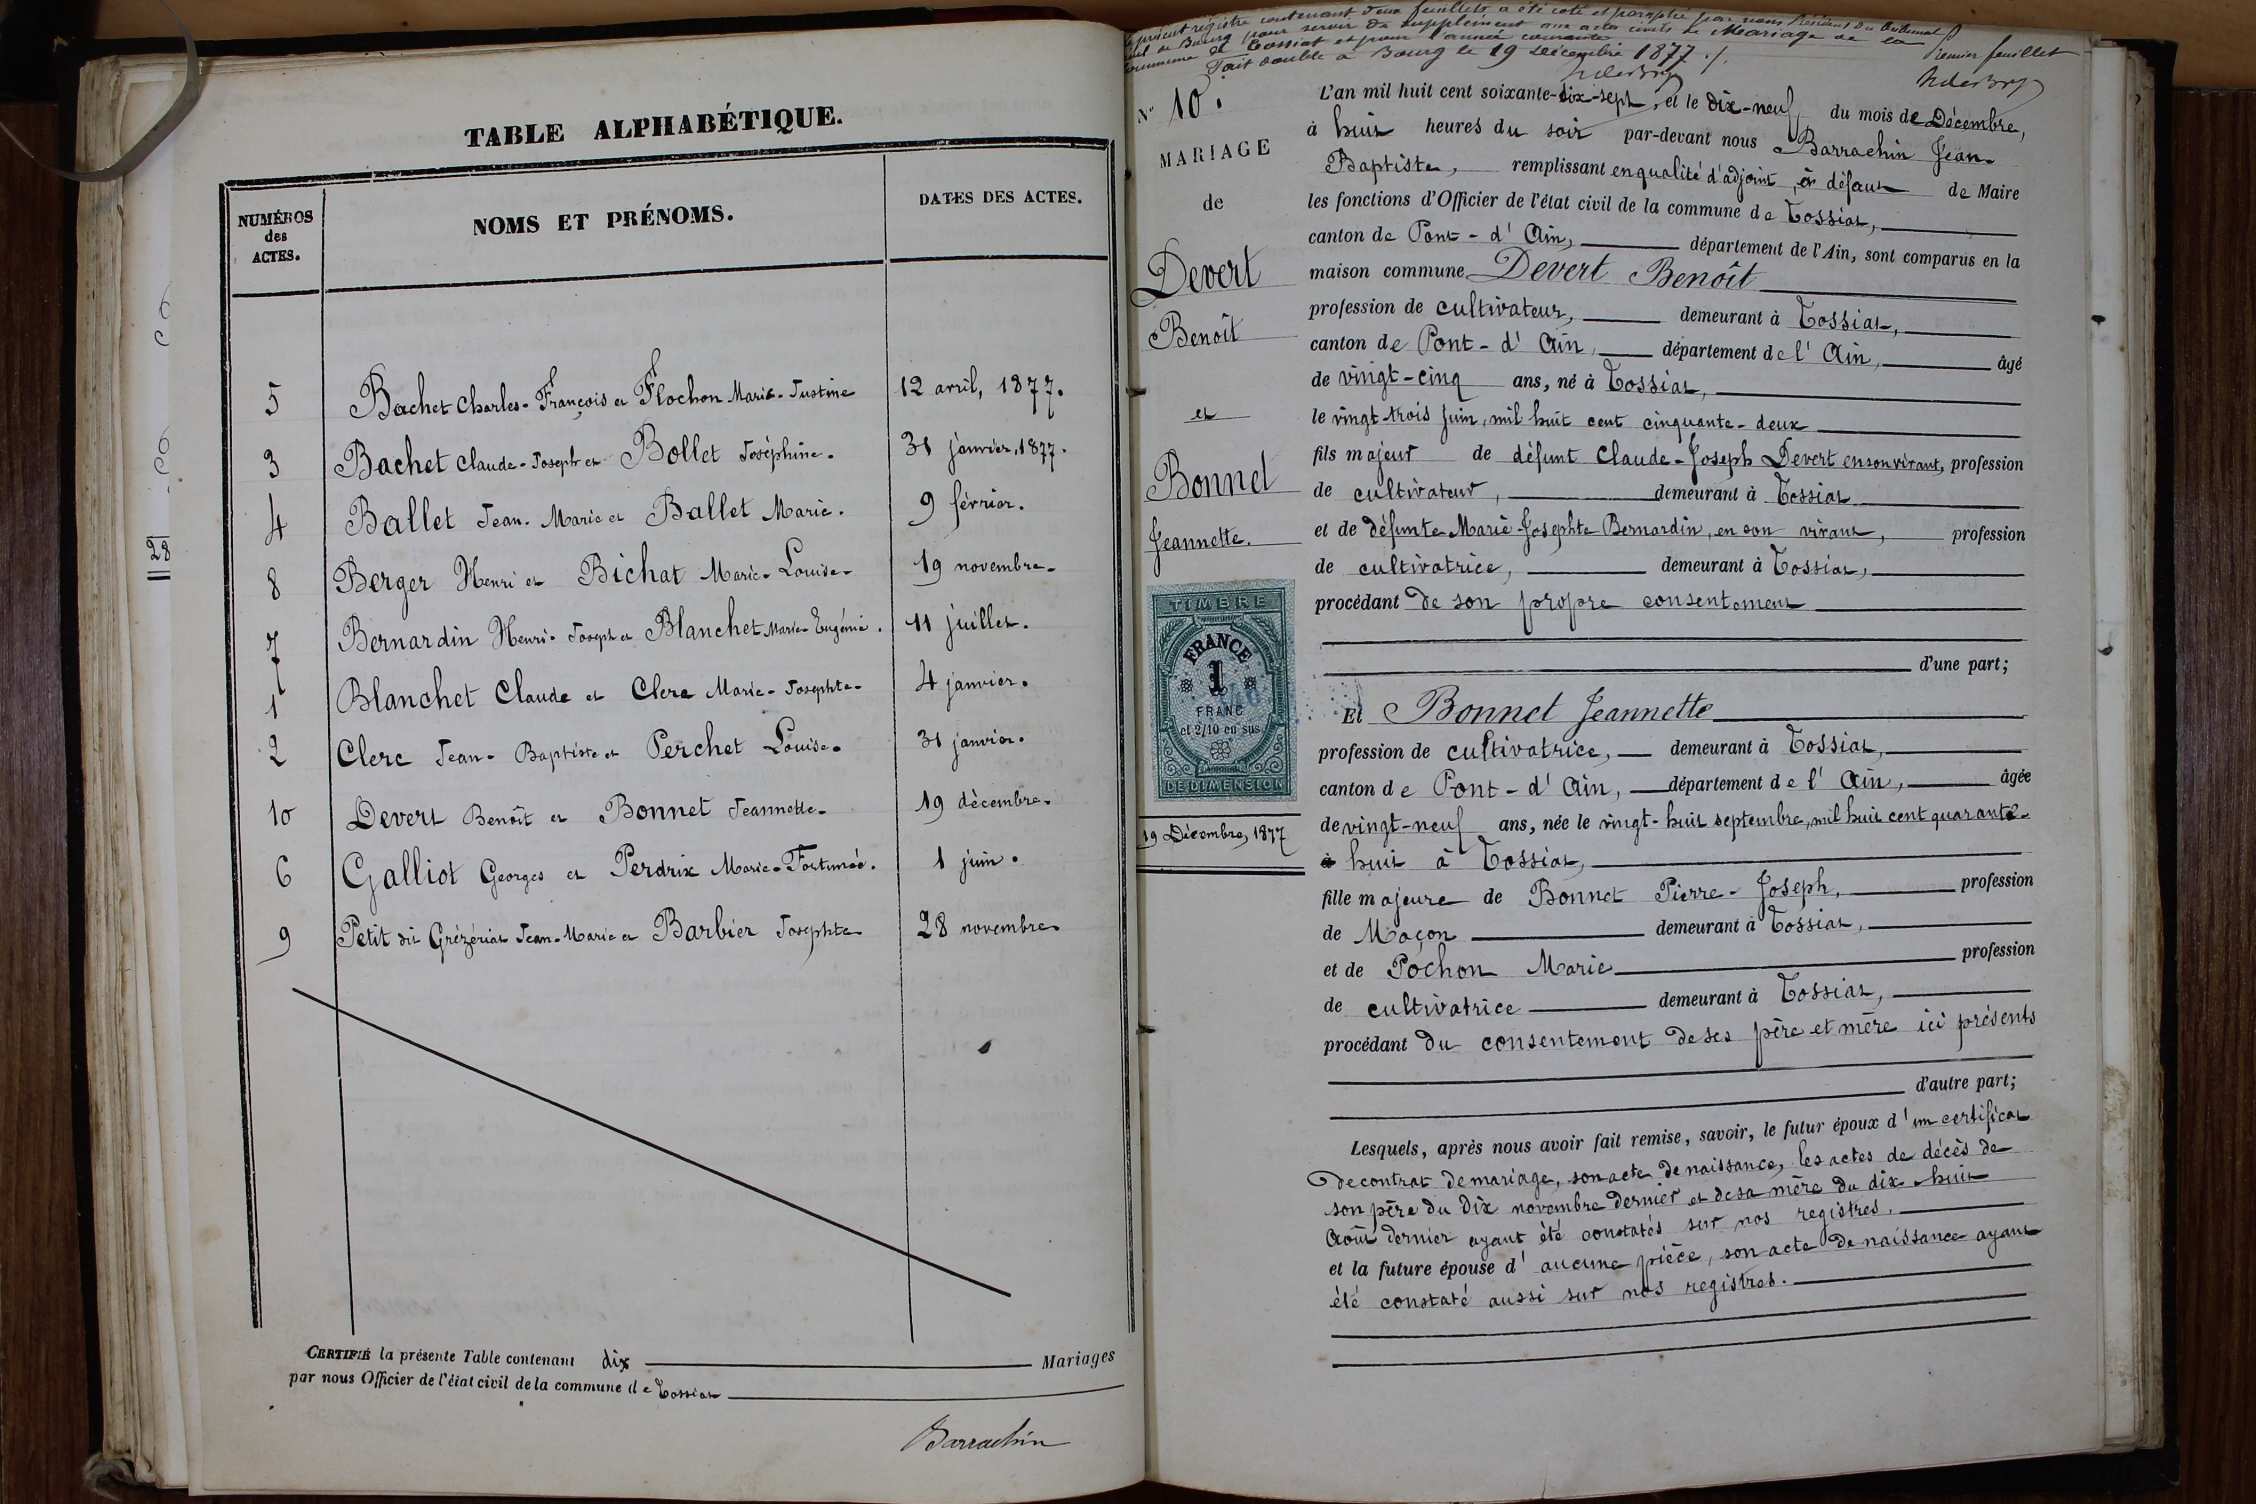 TABLE ALPHABÉTIQUE.
NUMÉROS des ACTES.
NOMS ET PRÉNOMS.
DATES DES ACTES.
5 Bachet Charles-François et Flochon Marie-Justine 12 avril, 1877.
3 Bachet Claude-Joseph et Bollet Joséphine. 31 janvier, 1877.
4 Ballet Jean-Marie et Ballet Marie. 9 février.
8 Berger Henri et Bichat Marie-Louise. 19 novembre.
7 Bernardin Henri-Joseph et Blanchet Marie-Eugénie. 11 juillet.
1 Blanchet Claude et Clerc Marie-Josephte. 4 janvier.
2 Clerc Jean-Baptiste et Perchet Louise. 31 janvier.
10 Devert Benoît et Bonnet Jeannette. 19 décembre.
6 Galliot Georges et Perdrix Marie-Fortunée. 1 juin.
9 Petit dit Grézériat Jean-Marie et Barbier Josephte 28 novembre
CERTIFIÉ la présente Table contenant dix Mariages
par nous Officier de l'état civil de la commune de Tossiat
Barrachin
28
présent registre contenant deux feuillets a été coté et paraphé par nous Président du tribunal
de Bourg pour servir de supplément aux actes civils de Mariage de la
commune de Tossiat et pour l'année courante
Fait double à Bourg le 19 Décembre 1877.
Premier feuillet
N° 10.
MARIAGE
de
Devert
Benoît
et
Bonnet
Jeannette.
TIMBRE
FRANCE
1
FRANC
et 2/10 en sus
DE DIMENSION
19 Décembre, 1877
L'an mil huit cent soixante-dix-sept, et le dix-neuf du mois de Décembre,
à huit heures du soir par-devant nous Barrachin Jean-
Baptiste, remplissant en qualité d'adjoint, à défaut de Maire
les fonctions d'Officier de l'état civil de la commune de Tossiat,
canton de Pont-d'Ain, département de l'Ain, sont comparus en la
maison commune Devert Benoît
profession de cultivateur, demeurant à Tossiat,
canton de Pont-d'Ain, département de l'Ain, âgé
de vingt-cinq ans, né à Tossiat,
le vingt-trois juin, mil huit cent cinquante-deux
fils majeur de défunt Claude-Joseph Devert en son vivant, profession
de cultivateur, demeurant à Tossiat
et de défunte Marie-Josephte Bernardin, en son vivant, profession
de cultivatrice, demeurant à Tossiat,
procédant de son propre consentement
d'une part;
Et Bonnet Jeannette
profession de cultivatrice, demeurant à Tossiat,
canton de Pont-d'Ain, département de l'Ain, âgée
de vingt-neuf ans, née le vingt-huit septembre, mil huit cent quarante-
huit à Tossiat,
fille majeure de Bonnet Pierre-Joseph, profession
de Maçon demeurant à Tossiat,
et de Pochon Marie profession
de cultivatrice demeurant à Tossiat,
procédant du consentement de ses père et mère ici présents
d'autre part;
Lesquels, après nous avoir fait remise, savoir, le futur époux d'un certificat
de contrat de mariage, son acte de naissance, les actes de décès de
son père du dix novembre dernier et de sa mère du dix-huit
Août dernier ayant été constatés sur nos registres.
et la future épouse d'aucune pièce, son acte de naissance ayant
été constaté aussi sur nos registres.